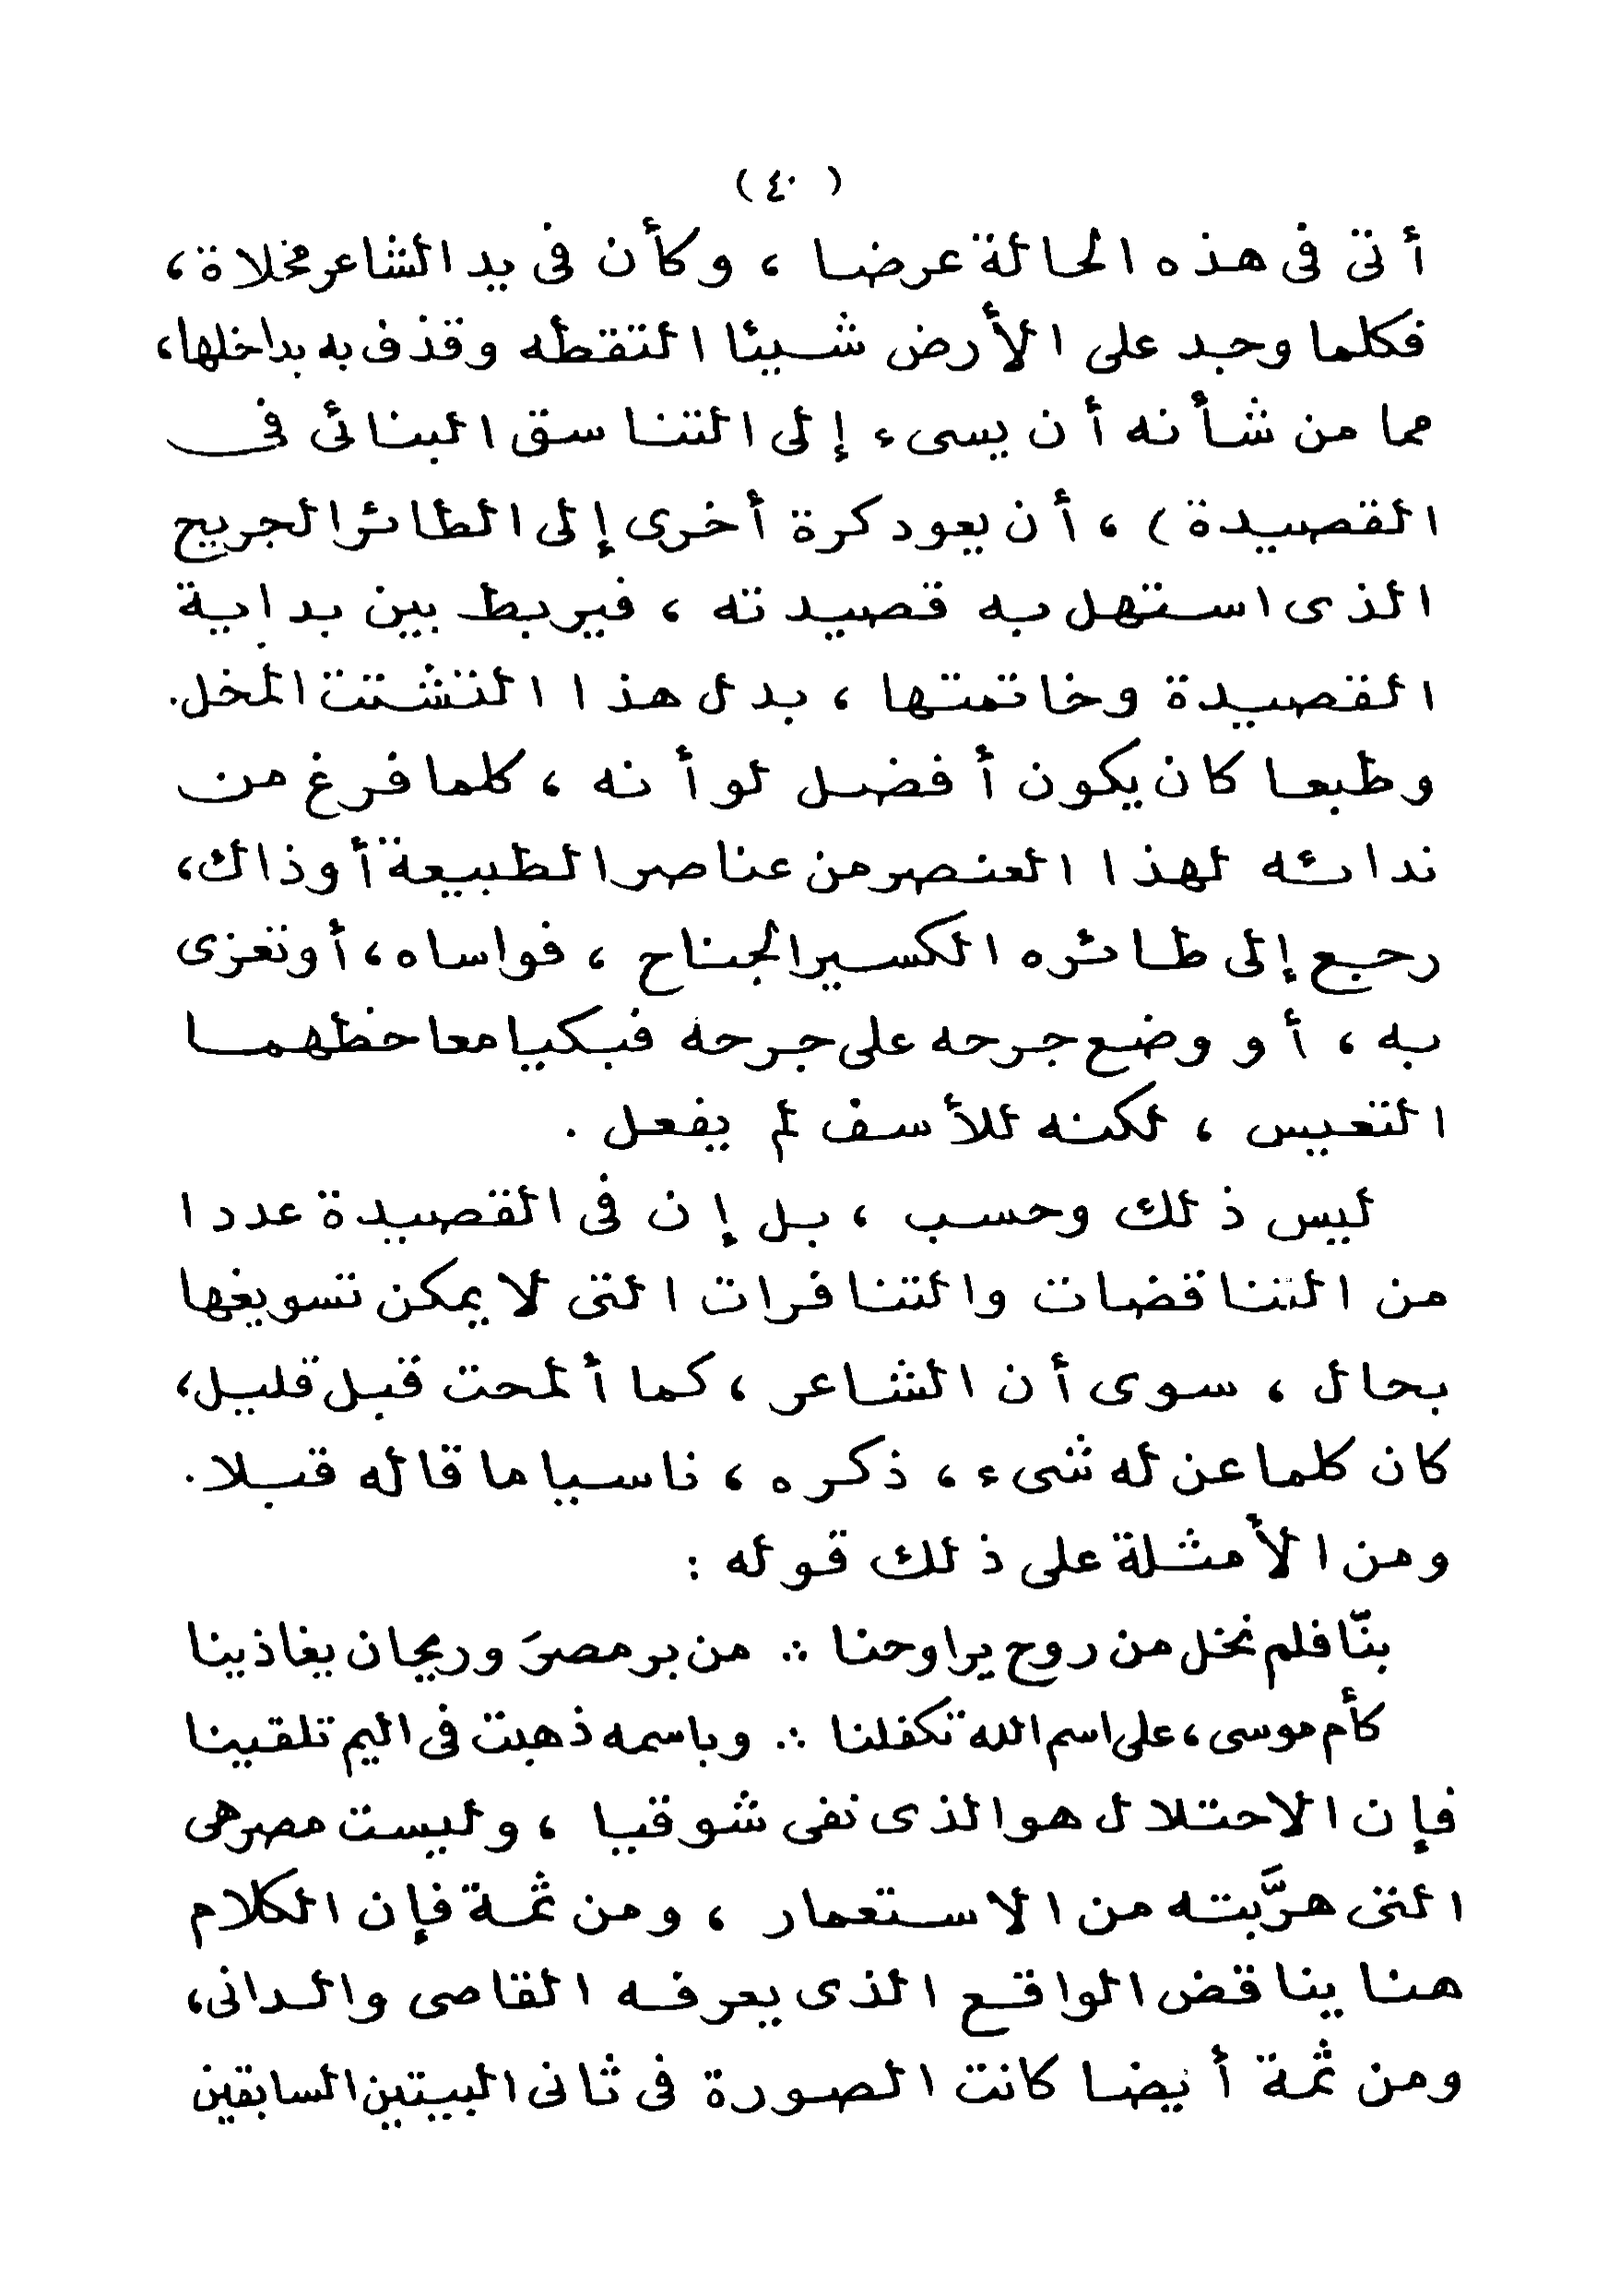 ( ٤٠ )
أتى فى هذه الحالة عرضا ، وكأن فى يد الشاعر مخلاة ،
فكلما وجد على الأرض شيئا التقطه وقذف به بداخلها ،
مما من شأنه أن يسىء إلى التناسق البنائى فى
القصيدة ) ، أن يعود كرة أخرى إلى الطائر الجريح
الذى استهل به قصيدته ، فيربط بين بداية
القصيدة وخاتمتها ، بدل هذا التشتت المخل .
وطبعا كان يكون أفضل لو أنه ، كلما فرغ من
ندائه لهذا العنصر من عناصر الطبيعة أو ذاك ،
رجع إلى طائره الكسير الجناح ، فواساه ، أو تعزى
به ، أو وضع جرحه على جرحه فبكيا معا حظهما
التعيس ، لكنه للأسف لم يفعل .
ليس ذلك وحسب ، بل إن فى القصيدة عددا
من التناقضات والتنافرات التى لا يمكن تسويغها
بحال ، سوى أن الشاعر ، كما ألمحت قبل قليل ،
كان كلما عن له شىء ، ذكره ، ناسيا ما قاله قبلا .
ومن الأمثلة على ذلك قوله :
بنّا فلم نخل من روح يراوحنا ∴ من بر مصرَ وريحان يغاذينا
كأم موسى ، على اسم الله تكفلنا ∴ وباسمه ذهبت فى اليم تلقينا
فإن الاحتلال هو الذى نفى شوقيا ، وليست مصر هى
التى هرَّبته من الاستعمار ، ومن ثمة فإن الكلام
هنا يناقض الواقع الذى يعرفه القاصى والدانى ،
ومن ثمة أيضا كانت الصورة فى ثانى البيتين السابقين